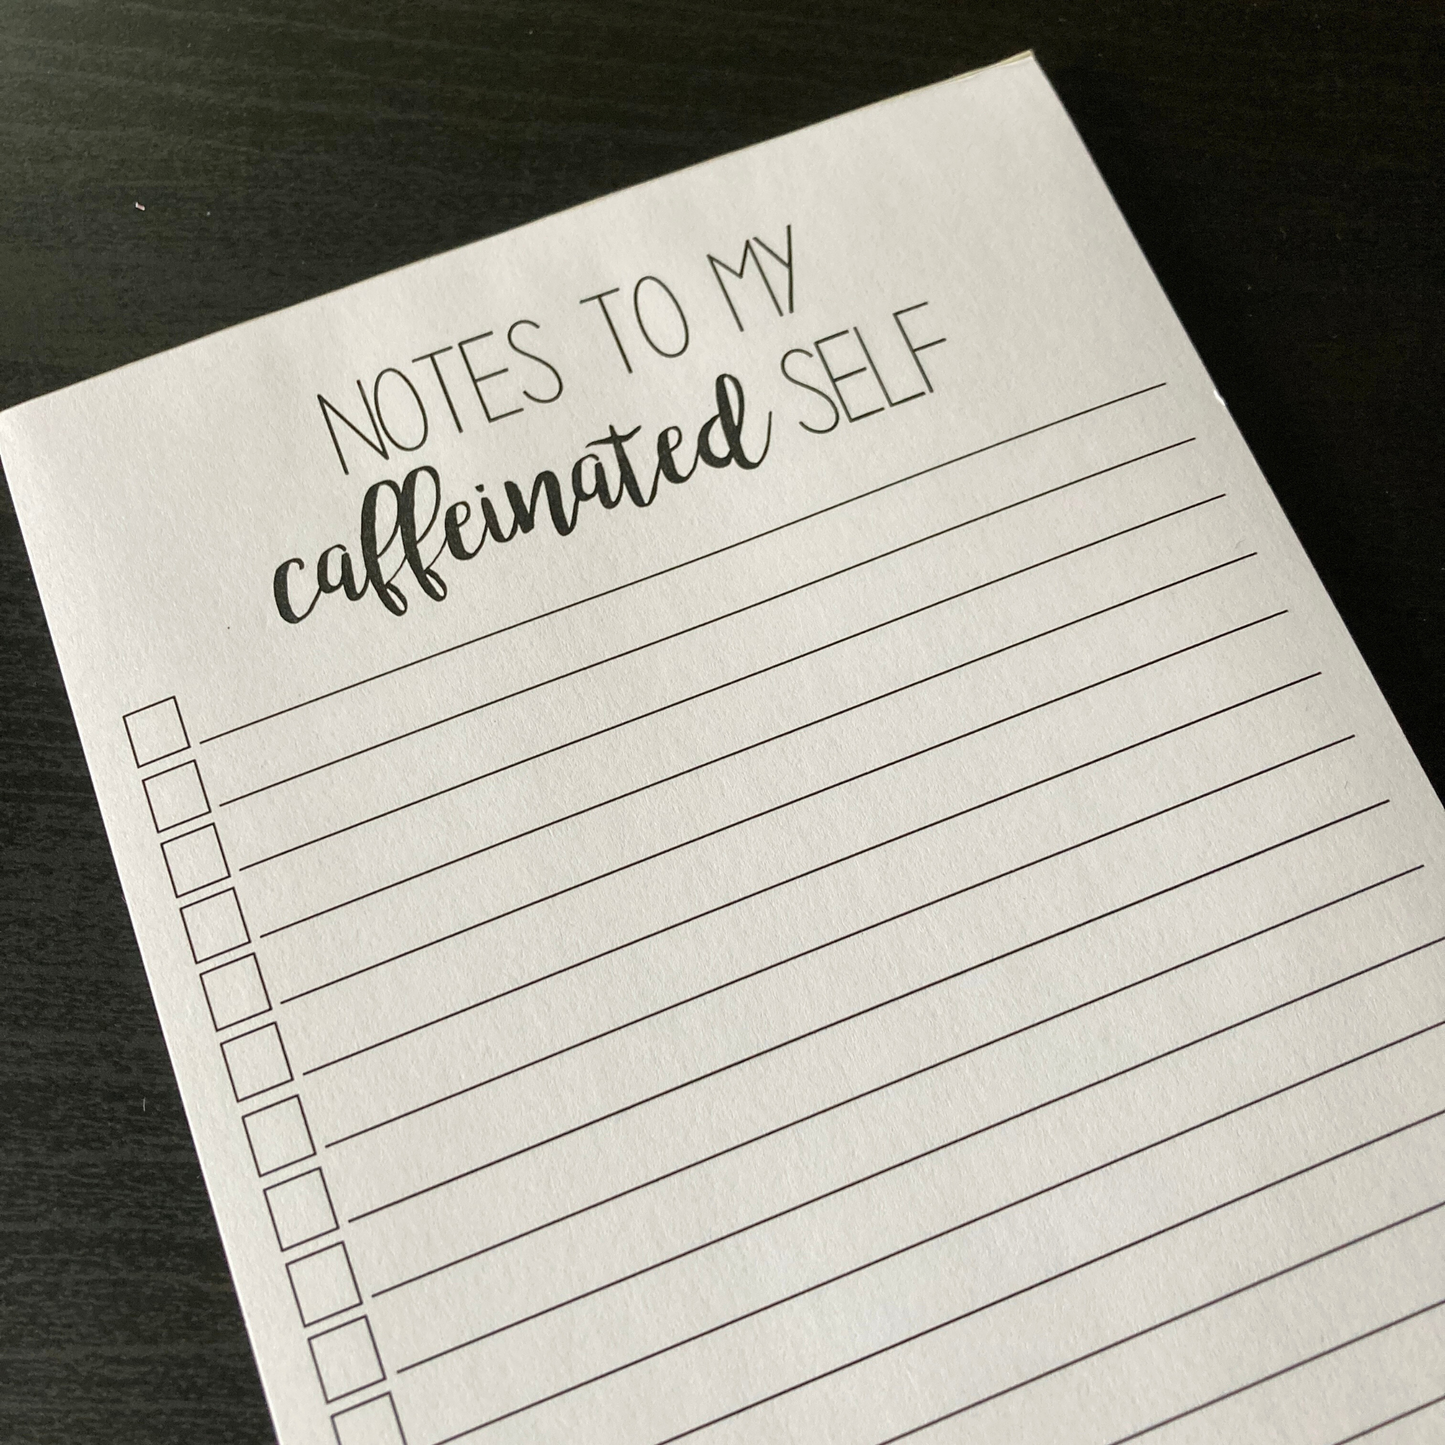 NOTES TO MY
caffeinated SELF